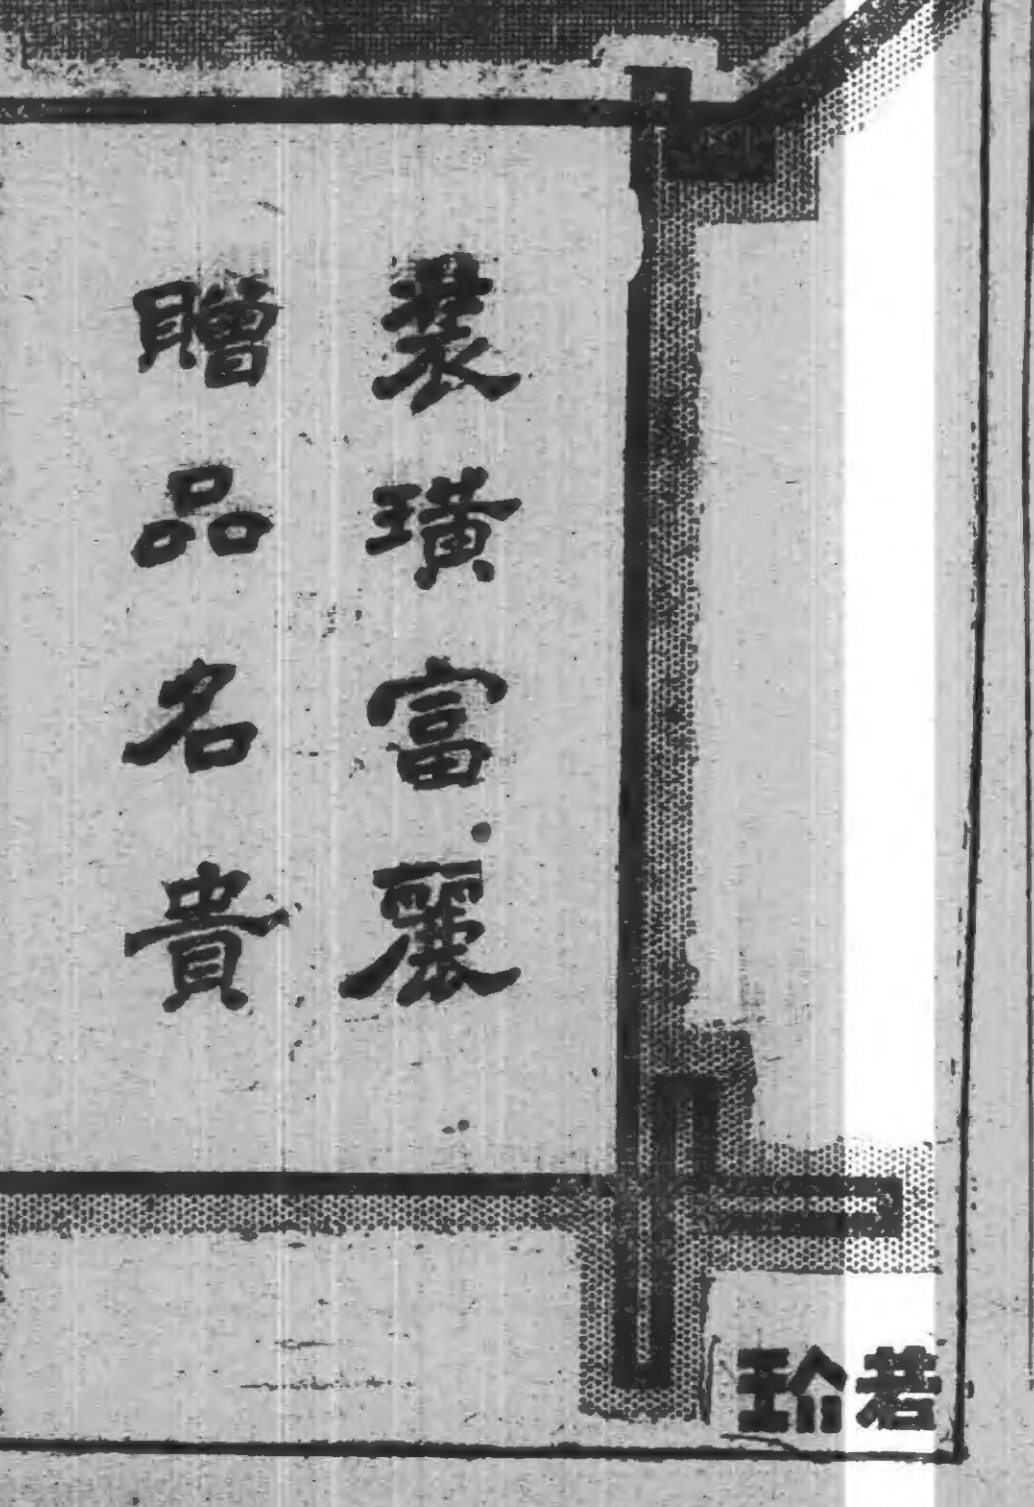 裝璜富麗
贈品名貴